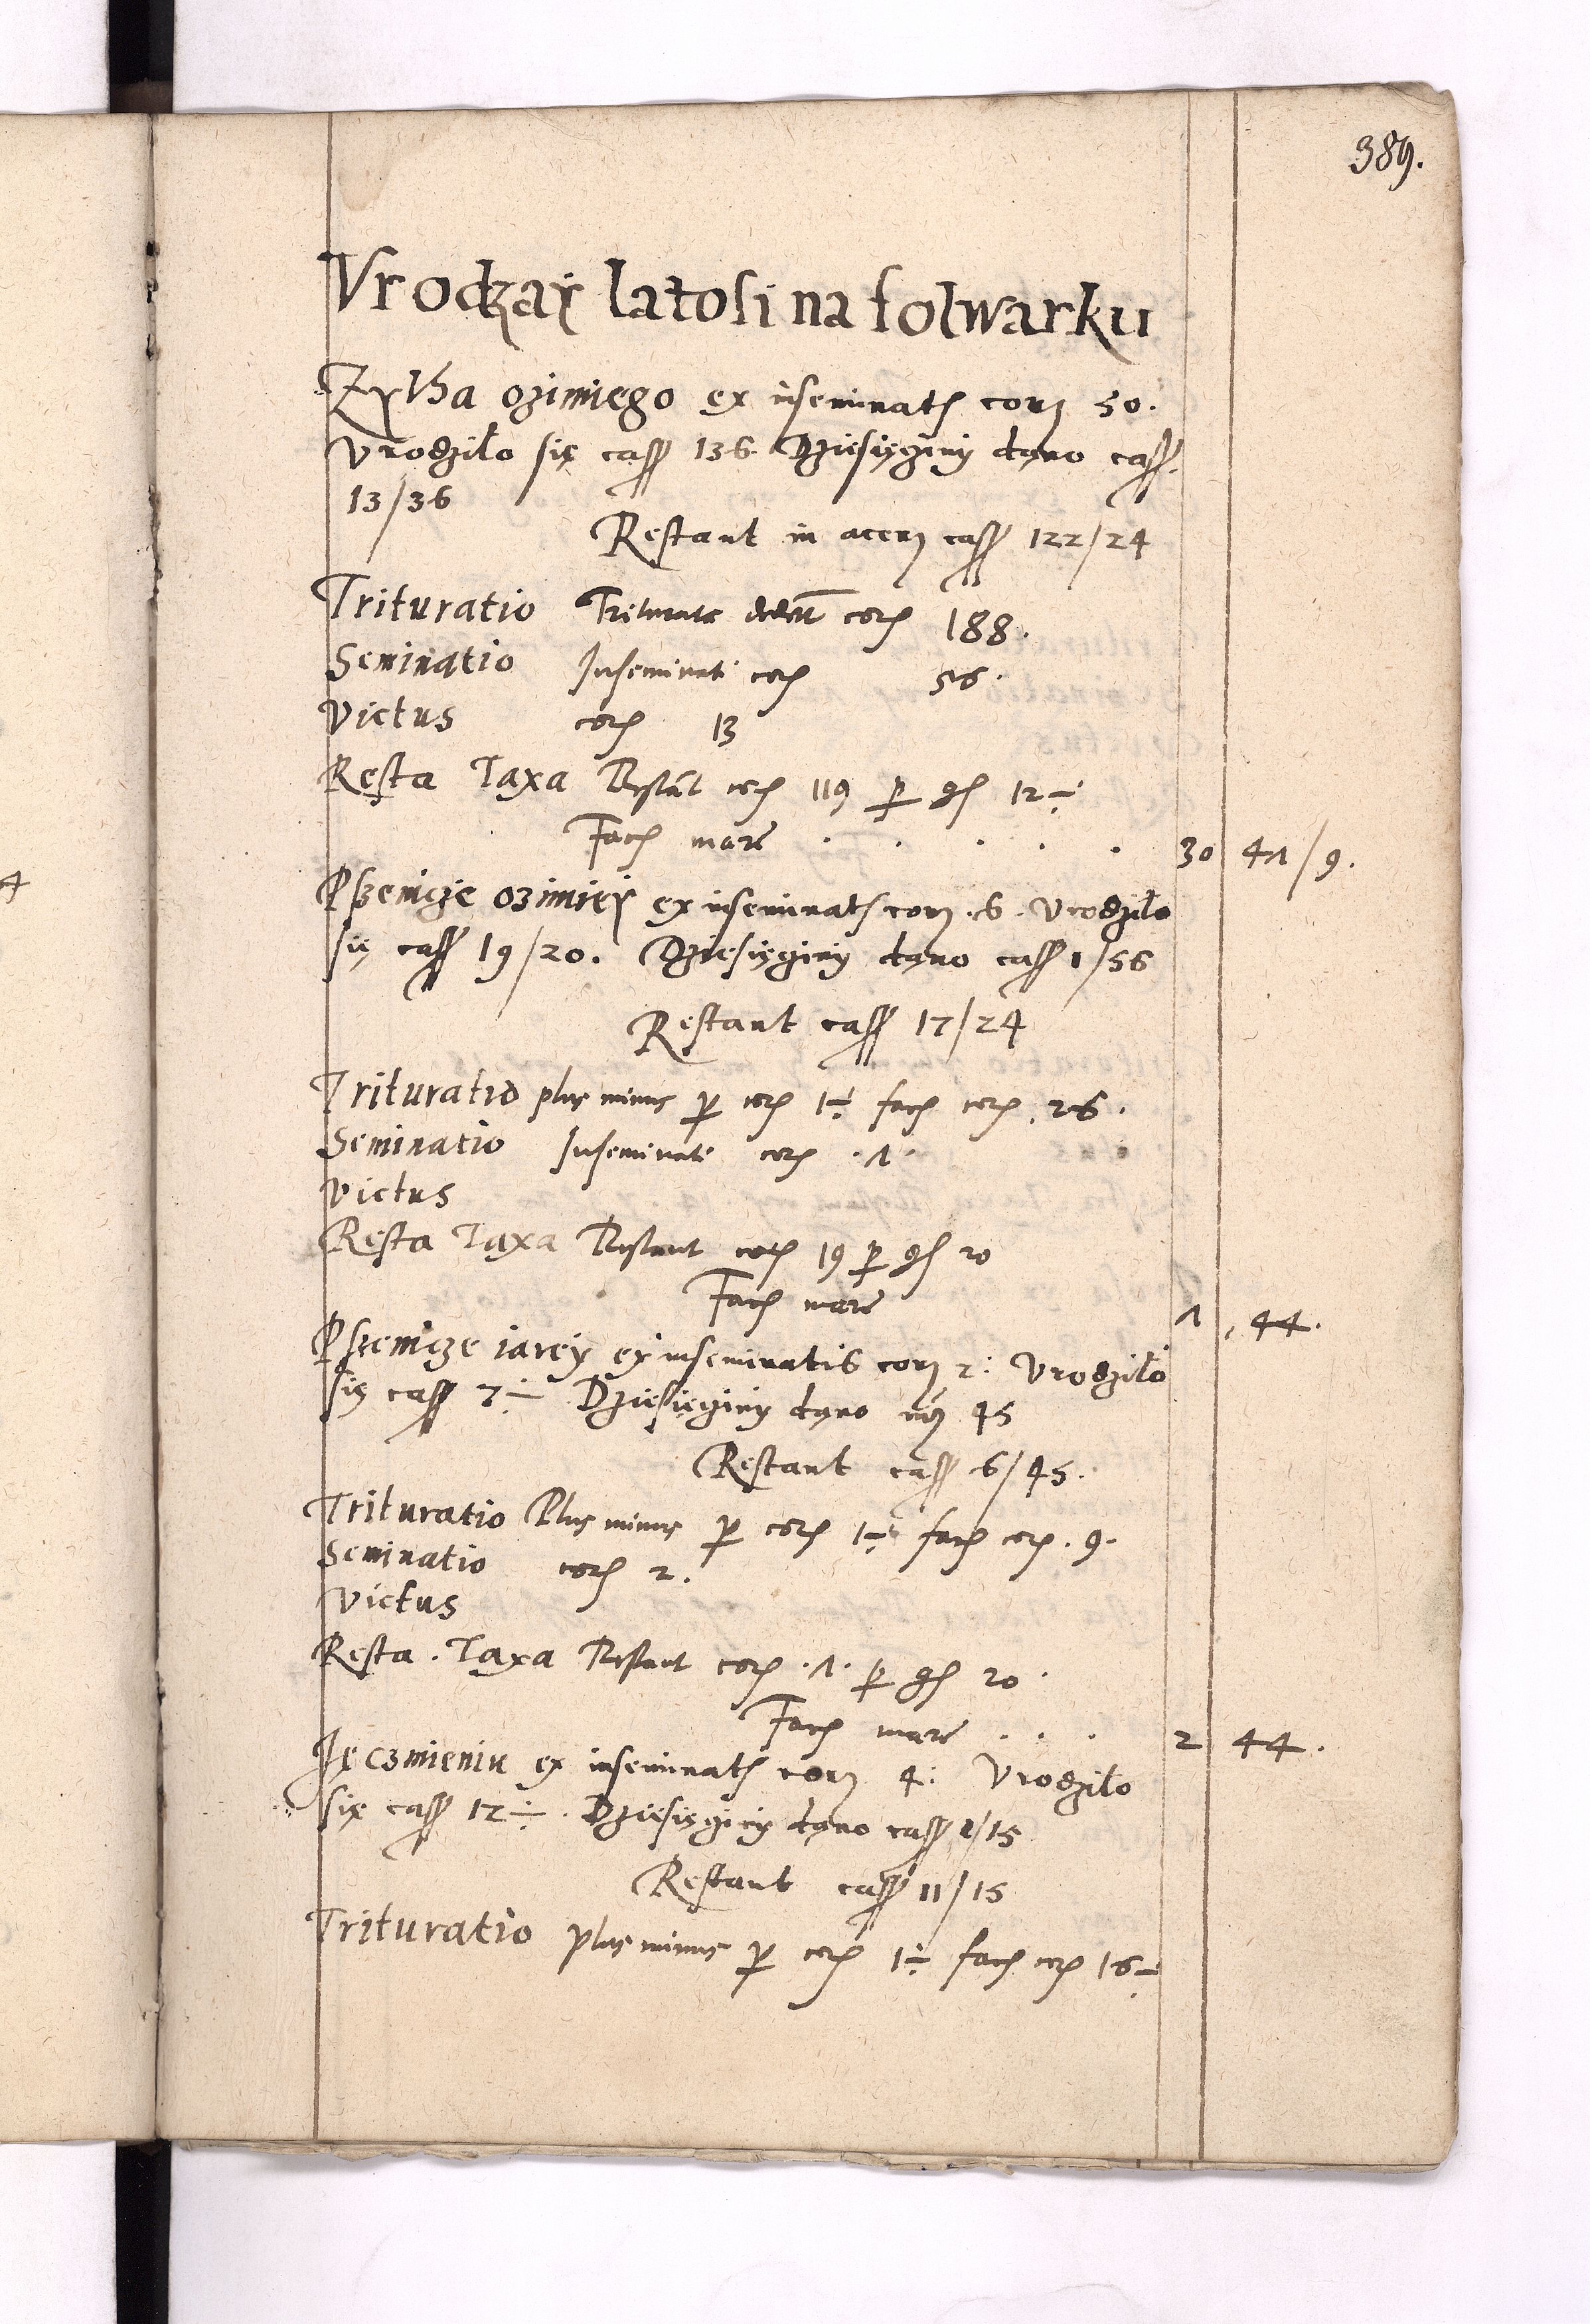 389.
Vrodzaÿ latosi na folwarku
Zÿtha ozimiego ex inseminatis coris 50.
Vrodziło się cass 136. Dziesięciny dano cass.
13/36
Restant in acervis cass 122/24
Trituratio Triturata dederunt coros 188.
Seminatio Inseminati cori 56.
Victus coros 13
Resta Taxa Restant cori 119 per gs 12÷
Facit marc . . . . . 30 41/9.
Pszenicze ozimieÿ ex inseminatis coris .6. Vrodziło
się cass 19/20. Dziesięciny dano cass 1/56
Restant cass 17/24
Trituratio plus minus per coros 1÷ facit coros .26.
Seminatio Inseminati cori .1.
Victus
Resta Taxa Restant cori 19 per gs 20
Facit marc 1 , 44.
Pszenicze iareÿ ex inseminatis coris 2: Vrodziło
się cass 7÷ Dziesięciny dano 45
Restant cass 6/45.
Trituratio Plus minus per coros 1÷ facit coros .9.
Seminatio coros 2.
Victus
Resta . Taxa Restant cori .1. per gs 20.
Facit marc . . . 2 44.
Jęczmieniu ex inseminatis coris 4: Vrodziło
się cass 12÷. Dziesięciny dano cass 1/15
Restant cass 11/15
Trituratio plus minus per coros 1÷ facit coros 16÷